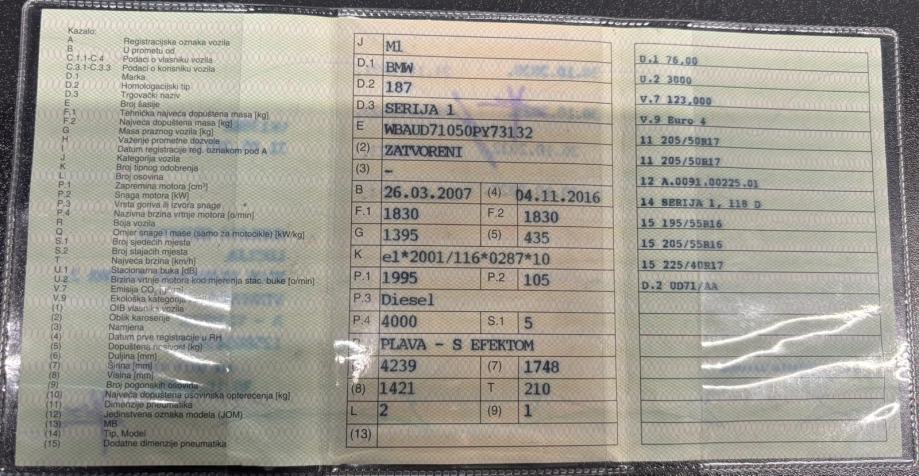 Kazalo:
A Registracijska oznaka vozila
B U prometu od
C.1.1-C.4 Podaci o vlasniku vozila
C.3.1-C.3.3 Podaci o korisniku vozila
D.1 Marka
D.2 Homologacijski tip
D.3 Trgovački naziv
E Broj šasije
F.1 Tehnička najveća dopuštena masa [kg]
F.2 Najveća dopuštena masa [kg]
G Masa praznog vozila [kg]
H Važenje prometne dozvole
I Datum registracije reg. oznakom pod A
J Kategorija vozila
K Broj tipnog odobrenja
L Broj osovina
P.1 Zapremina motora [cm³]
P.2 Snaga motora [kW]
P.3 Vrsta goriva ili izvora snage
P.4 Nazivna brzina vrtnje motora [o/min]
R Boja vozila
Q Omjer snage i mase (samo za motocikle) [kW/kg]
S.1 Broj sjedećih mjesta
S.2 Broj stajaćih mjesta
T Najveća brzina [km/h]
U.1 Stacionarna buka [dB]
U.2 Brzina vrtnje motora kod mjerenja stac. buke [o/min]
V.7 Emisija CO₂ [g/km]
V.9 Ekološka kategorija
(1) OIB vlasnika vozila
(2) Oblik karoserije
(3) Namjena
(4) Datum prve registracije u RH
(5) Dopuštena nosivost [kg]
(6) Duljina [mm]
(7) Širina [mm]
(8) Visina [mm]
(9) Broj pogonskih osovina
(10) Najveća dopuštena osovinska opterećenja [kg]
(11) Dimenzije pneumatika
(12) Jedinstvena oznaka modela (JOM)
(13) MB
(14) Tip, Model
(15) Dodatne dimenzije pneumatika
J M1
D.1 BMW
D.2 187
D.3 SERIJA 1
E WBAUD71050PY73132
(2) ZATVORENI
(3) -
B 26.03.2007 (4) 04.11.2016
F.1 1830 F.2 1830
G 1395 (5) 435
K e1*2001/116*0287*10
P.1 1995 P.2 105
P.3 Diesel
P.4 4000 S.1 5
PLAVA - S EFEKTOM
4239 (7) 1748
(8) 1421 T 210
L 2 (9) 1
(13)
U.1 76,00
U.2 3000
V.7 123,000
V.9 Euro 4
11 205/50R17
11 205/50R17
12 A.0091.00225.01
14 SERIJA 1, 118 D
15 195/55R16
15 205/55R16
15 225/40R17
D.2 UD71/AA